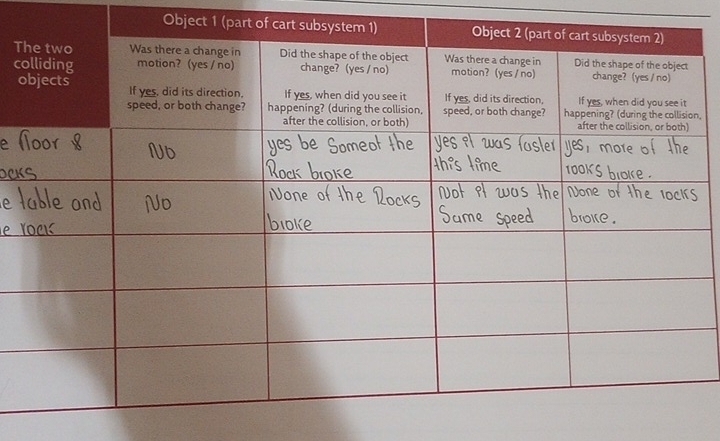 Object 1 (part of cart subsystem 1)
Object 2 (part of cart subsystem 2)
The two
colliding
objects
Was there a change in
motion? (yes / no)
If yes, did its direction,
speed, or both change?
Did the shape of the object
change? (yes / no)
If yes, when did you see it
happening? (during the collision,
after the collision, or both)
Was there a change in
motion? (yes / no)
If yes, did its direction,
speed, or both change?
Did the shape of the object
change? (yes / no)
If yes, when did you see it
happening? (during the collision,
after the collision, or both)
e floor &
ocks
No
yes be Someot the
Rock broke
yes it was faster
this time
yes, more of the
rooks broke.
e table and
e rock
No
None of the Rocks
broke
Not it was the
Same speed
None of the rocks
broke.